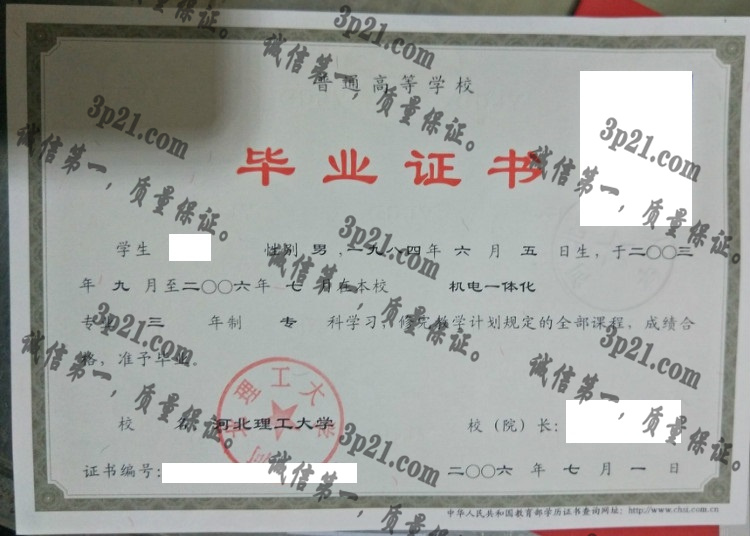 普通高等学校
毕业证书
学生 性别 男 ,一九八四年 六 月 五 日生，于二〇〇三
年 九 月至二〇〇六年 七 月在本校 机电一体化
专业 三 年制 专 科学习，修完教学计划规定的全部课程，成绩合
格，准予毕业。
校 名 河北理工大学 校（院）长：
证书编号: 二〇〇六 年 七 月 一 日
中华人民共和国教育部学历证书查询网址：http://www.chsi.com.cn
河北理工大学
3p21.com
诚信第一，质量保证。
3p21.com
诚信第一，质量保证。
3p21.com
诚信第一，质量保证。
3p21.com
诚信第一，质量保证。
3p21.com
诚信第一，质量保证。
3p21.com
诚信第一，质量保证。
3p21.com
诚信第一，质量保证。